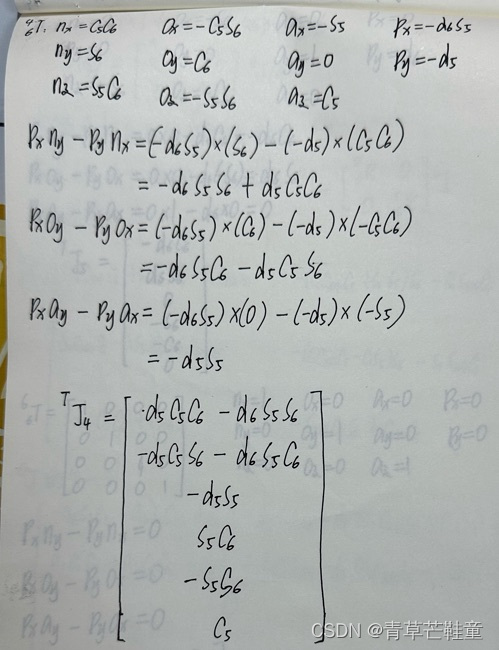 ⁴₆T: nx=C5C6 ox=-C5S6 ax=-S5 Px=-d6S5
ny=S6 oy=C6 ay=0 Py=-d5
nz=S5C6 oz=-S5S6 az=C5
Pxny-Pynx=(-d6S5)×(S6)-(-d5)×(C5C6)
=-d6S5S6+d5C5C6
Pxoy-Pyox=(-d6S5)×(C6)-(-d5)×(-C5C6)
=-d6S5C6-d5C5S6
Pxay-Pyax=(-d6S5)×(0)-(-d5)×(-S5)
=-d5S5
ᵀJ4=
-d5C5C6-d6S5S6
-d5C5S6-d6S5C6
-d5S5
S5C6
-S5S6
C5
CSDN @青草芒鞋童